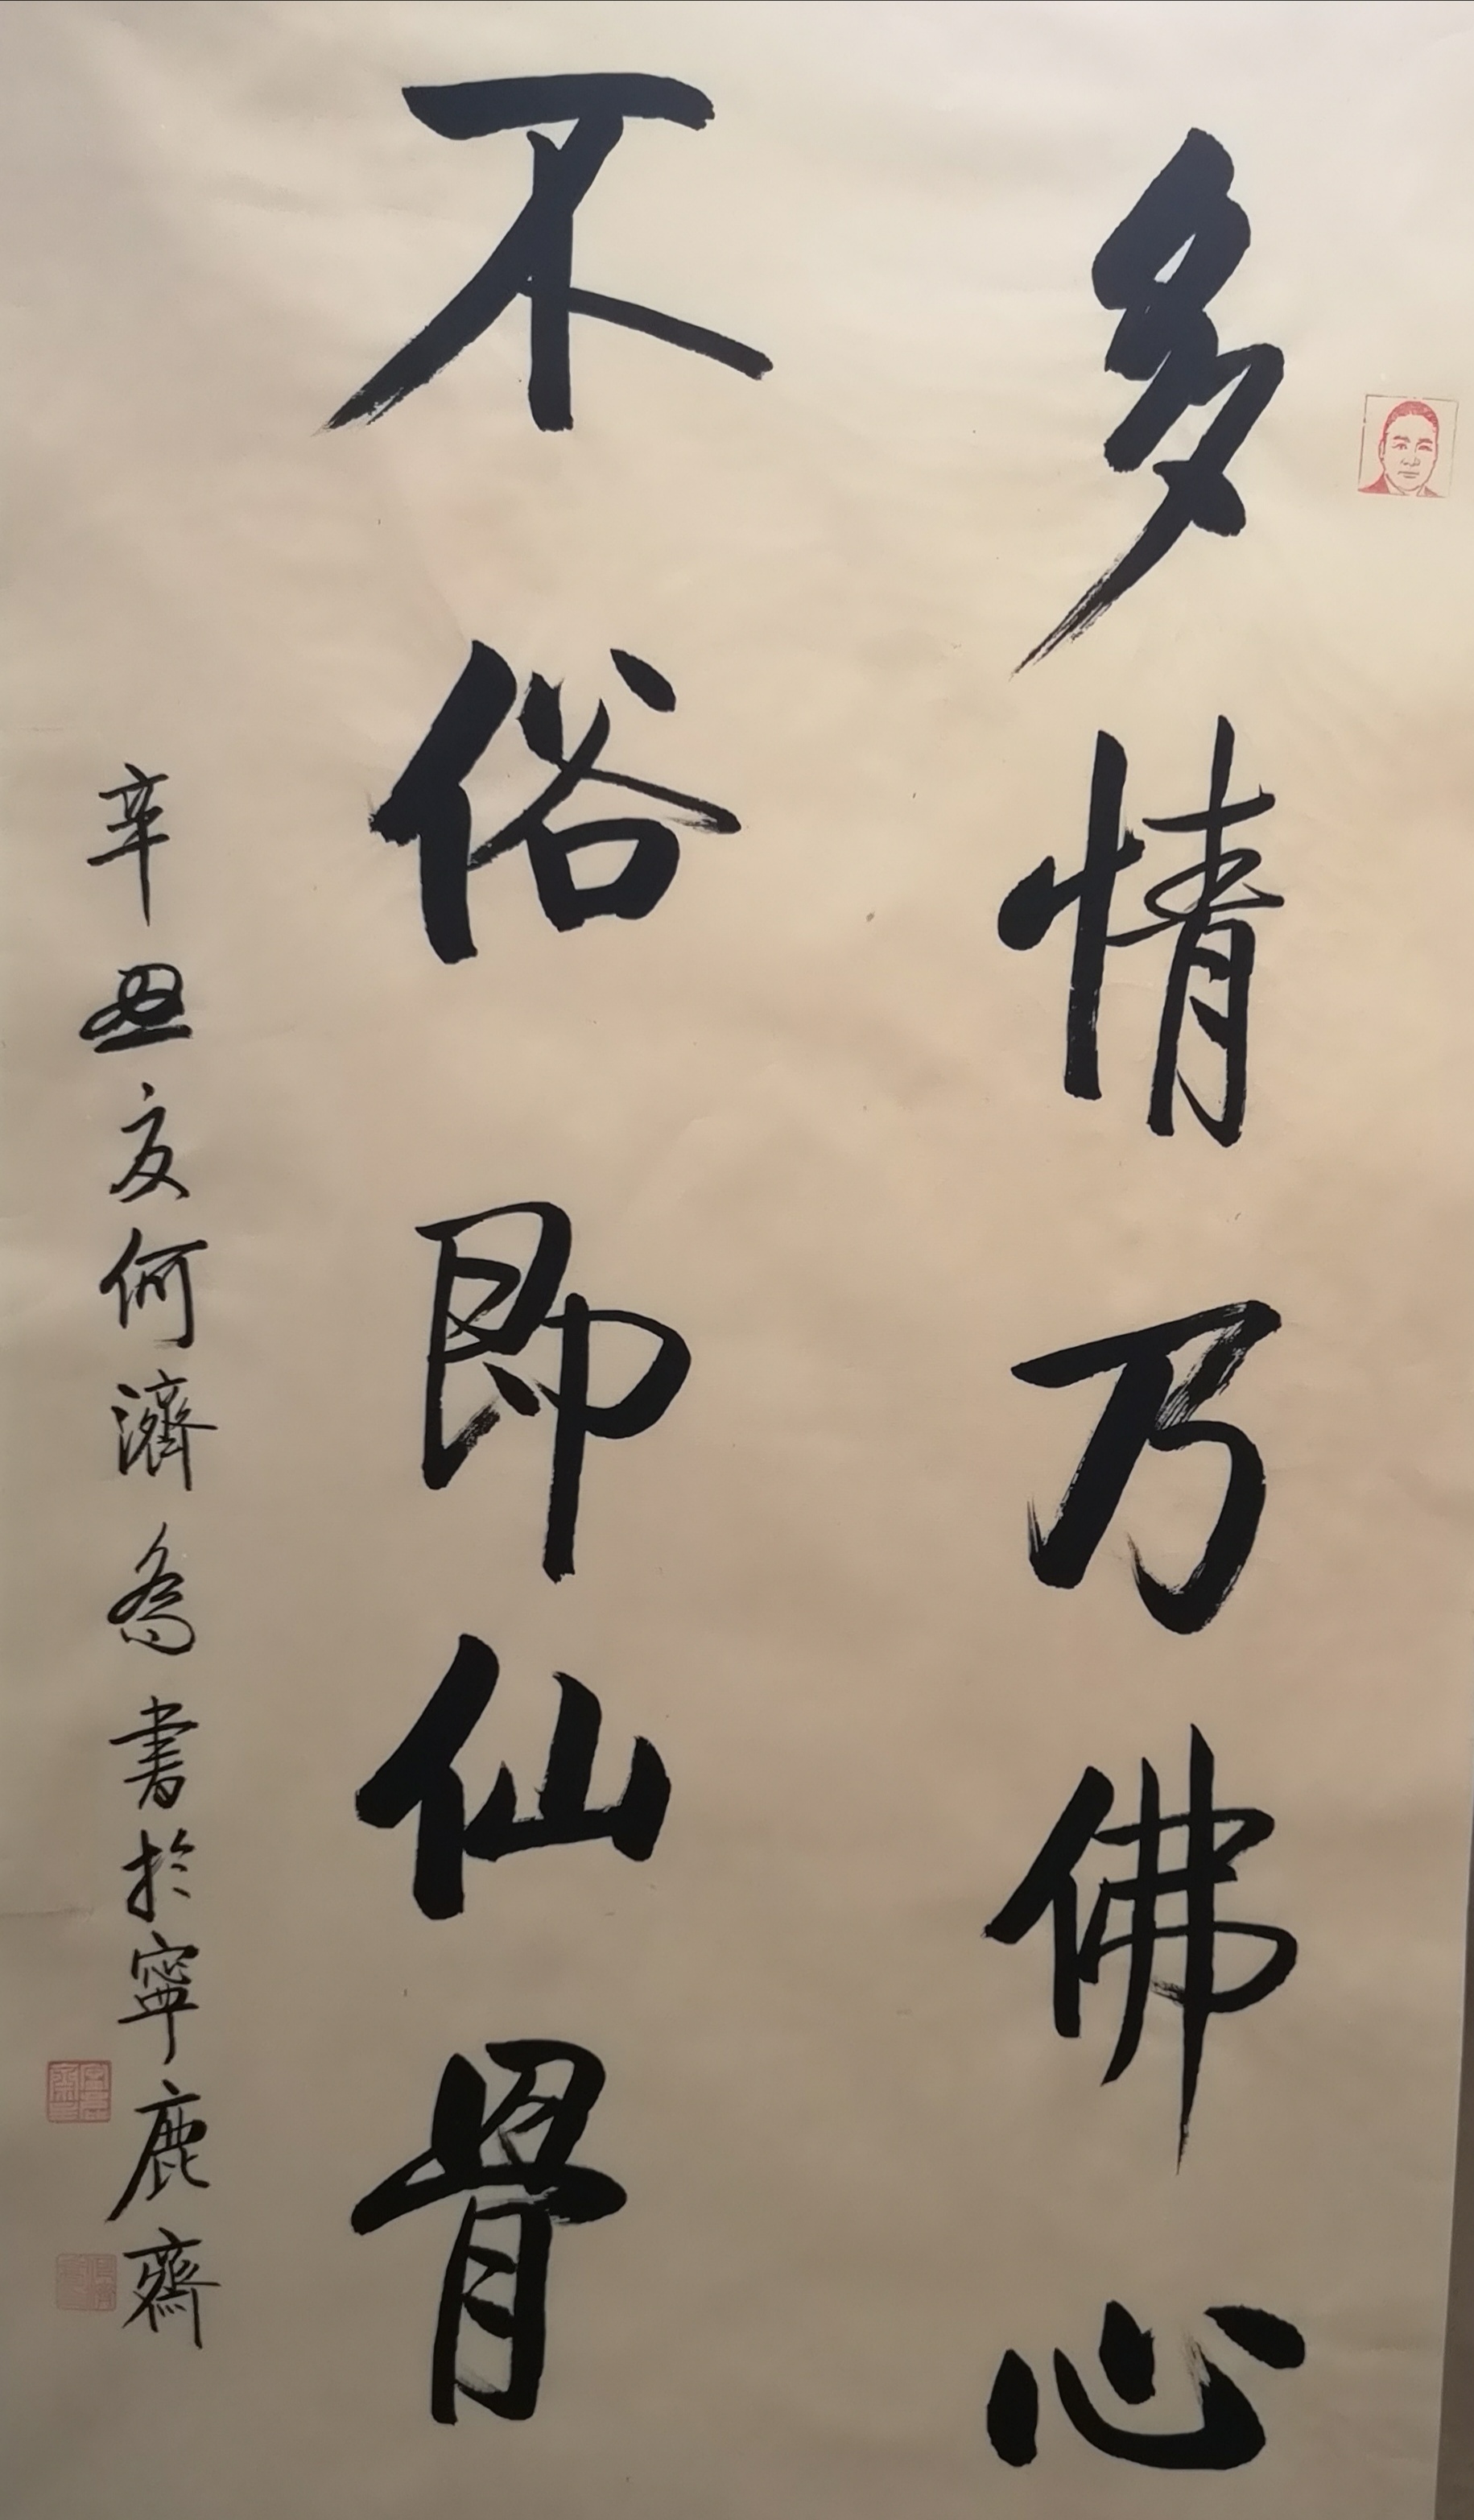 多情乃佛心
不俗即仙骨
辛丑夏何濟為書於寧鹿齋